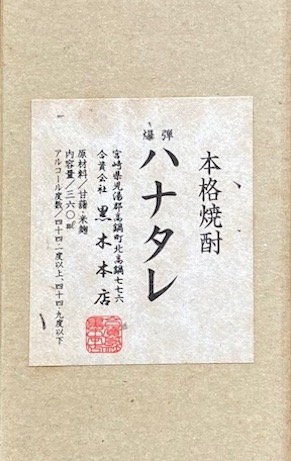 本格焼酎
爆弾
ハナタレ
宮崎県児湯郡高鍋町北高鍋七七六
合資会社 黒木本店
原材料／甘藷・米麹
内容量／三六〇㎖
アルコール度数／四十四・二度以上、四十四・九度以下